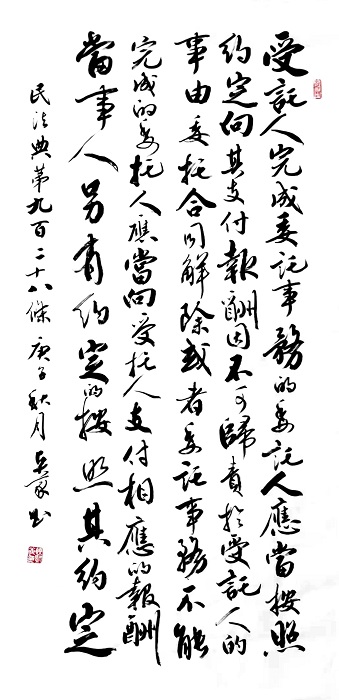 受託人完成委託事務的委託人應當按照
約定向其支付報酬因不可歸責於受託人的
事由委托合同解除或者委託事務不能
完成的委托人應當向受托人支付相應的報酬
當事人另有約定的按照其約定
民法典第九百二十八條 庚子秋月 书